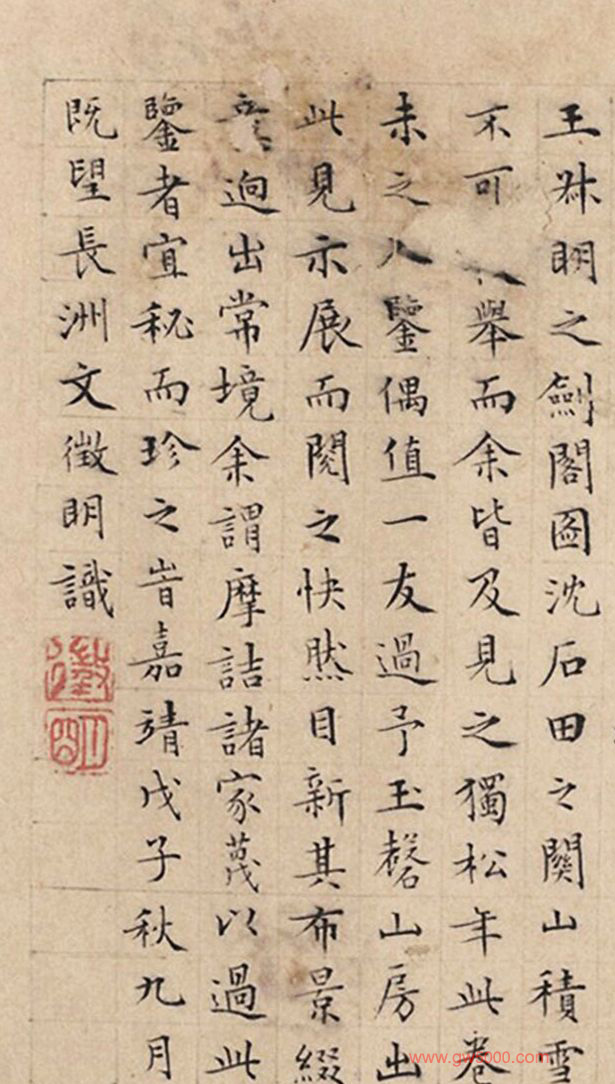 王叔明之劍閣圖沈石田之關山積雪
不可舉而余皆及見之獨松年此卷
未之鑒偶值一友過予玉磬山房出
此見示展而閱之快然目新其布景綴
意迥出常境余謂摩詰諸家蔑以過此
鑒者宜秘而珍之旹嘉靖戊子秋九月
既望長洲文徵明識
徵明
www.gws000.com